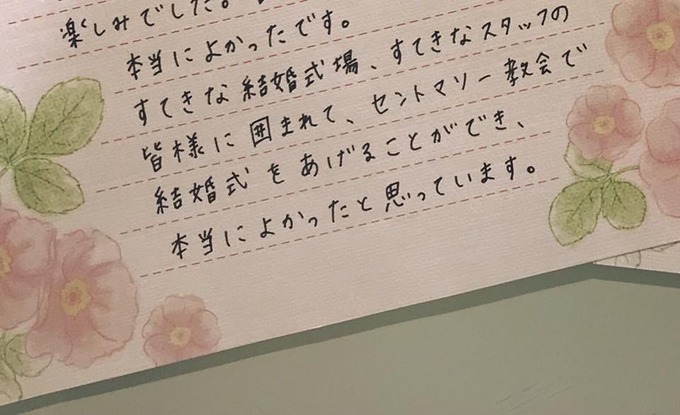 楽しみでした。
本当によかったです。
すてきな結婚式場、すてきなスタッフの
皆様に囲まれて、セントマリー教会で
結婚式をあげることができ、
本当によかったと思っています。